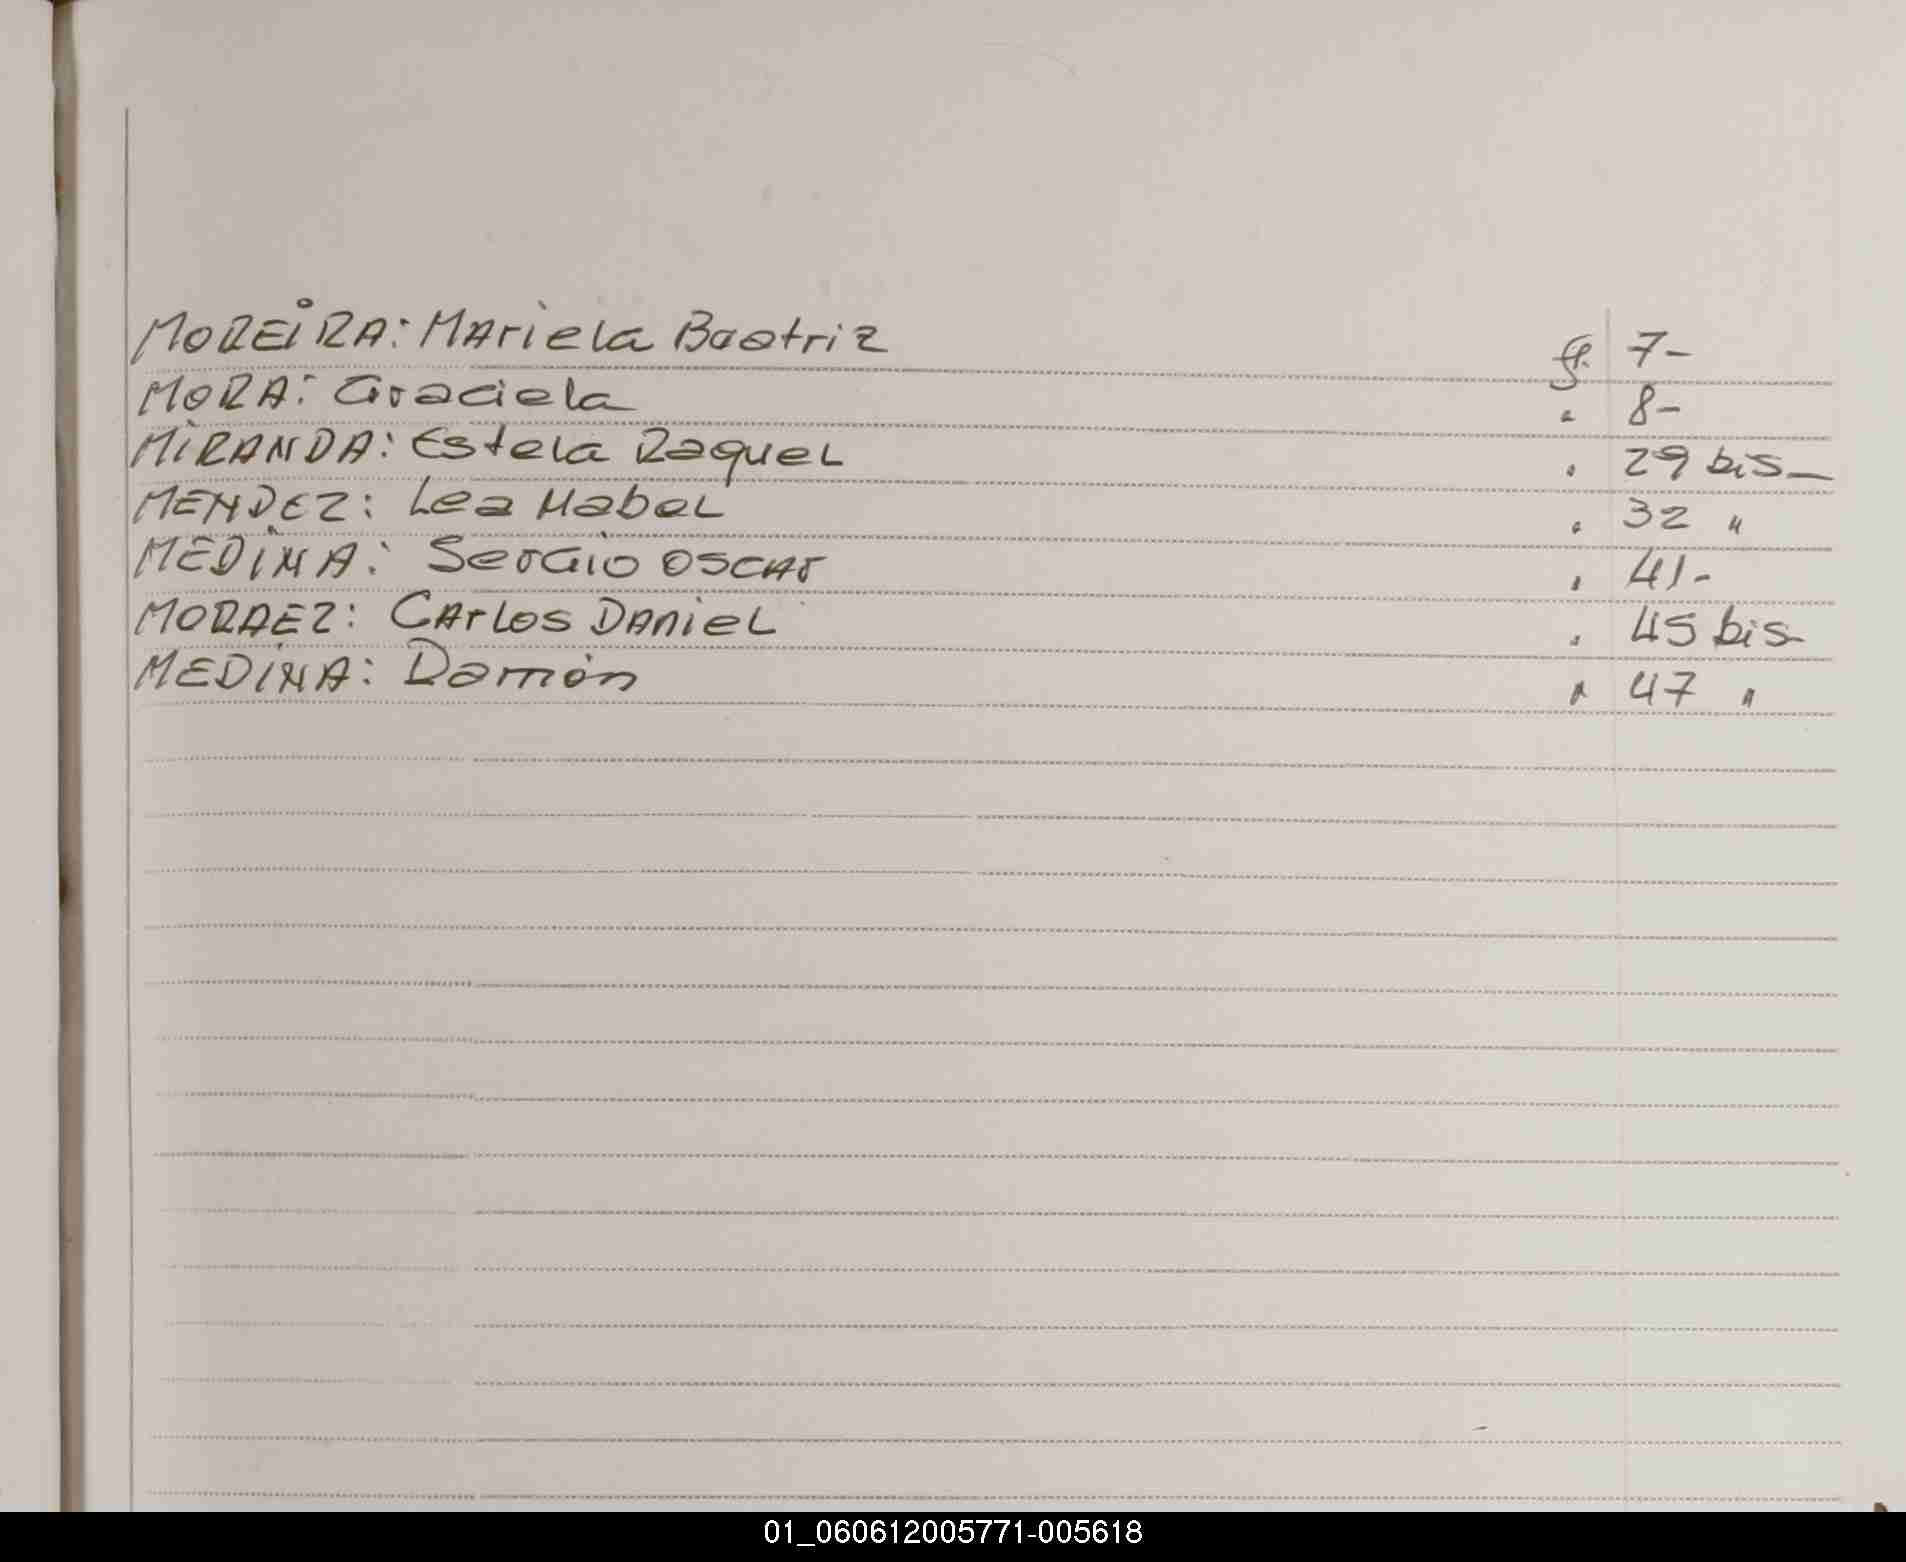 MOREIRA: Mariela Beatriz ff. 7-
MORA: Graciela " 8-
MIRANDA: Estela Raquel " 29 bis-
MENDEZ: Lea Mabel " 32 "
MEDINA: Sergio Oscar " 41-
MORAEZ: Carlos Daniel " 45 bis-
MEDINA: Damián " 47 "
01_060612005771-005618